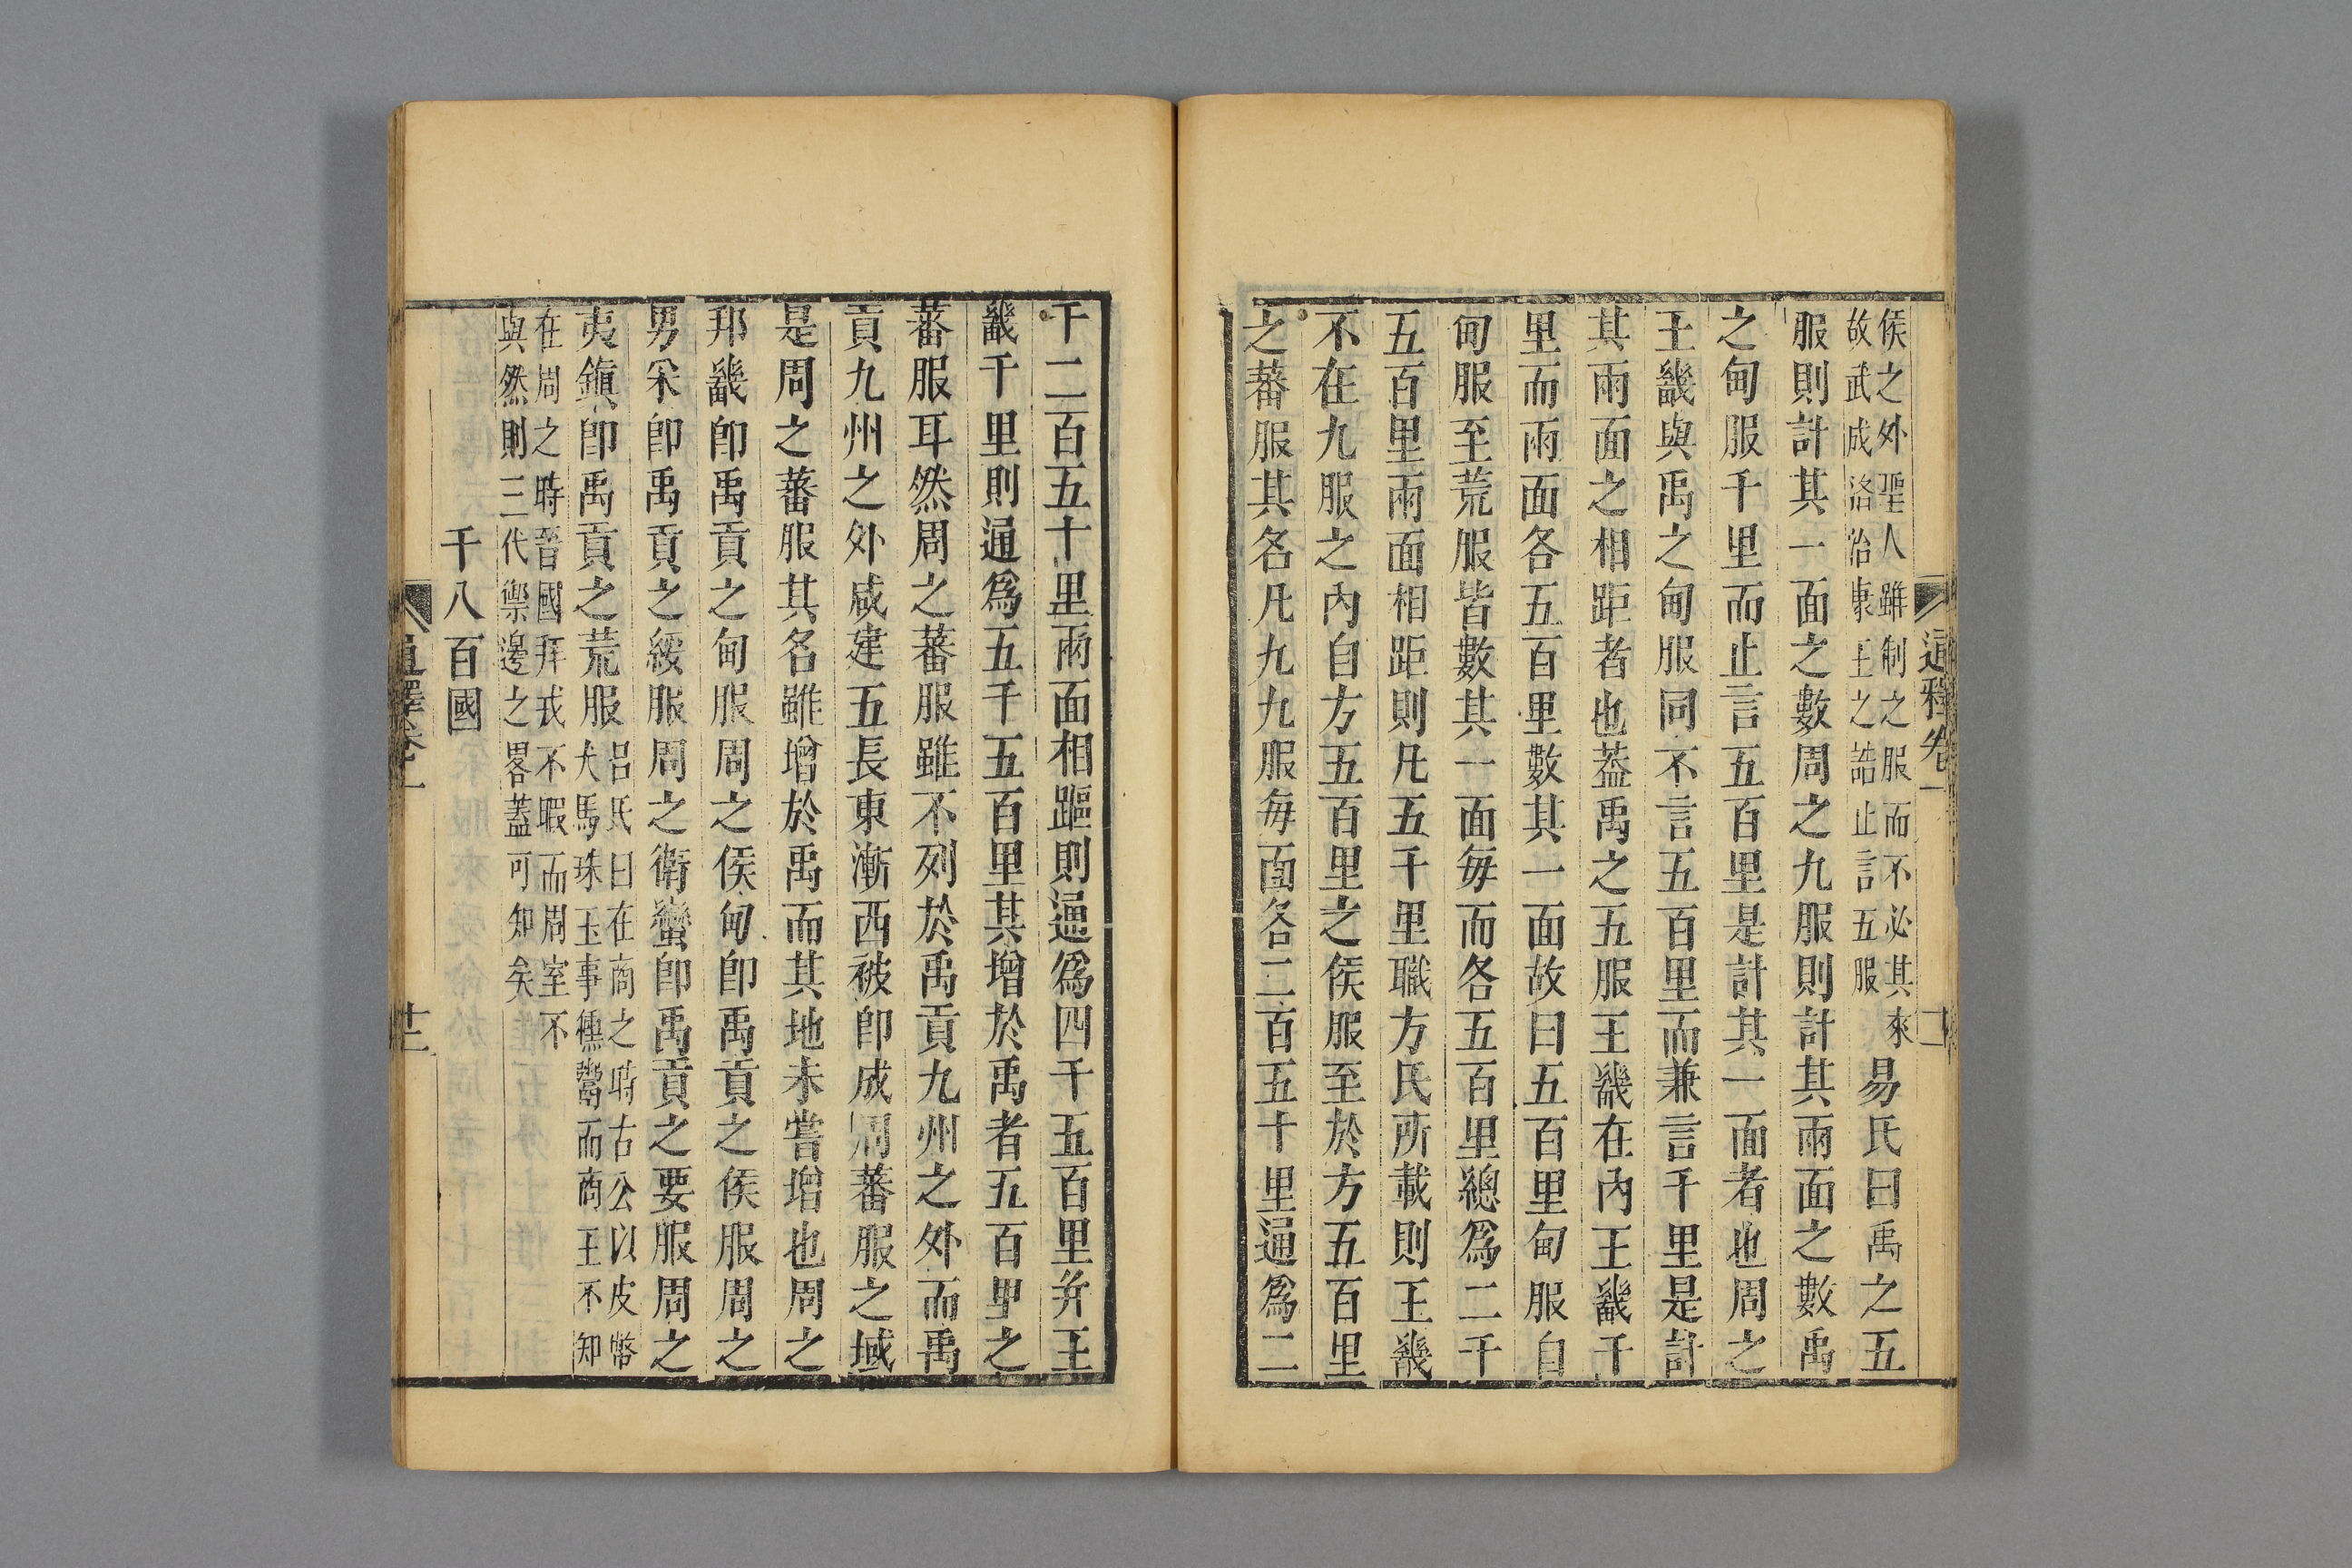 侯之外聖人雖制之服而不必其來
故武成洛冶康王之誥止言五服
易氏曰禹之五
服則計其一面之數周之九服則計其兩面之數禹
之甸服千里而止言五百里是計其一面者也周之
王畿與禹之甸服同不言五百里而兼言千里是計
其兩面之相距者也葢禹之五服王畿在內王畿千
里而兩面各五百里數其一面故曰五百里甸服自
甸服至荒服皆數其一面每而各五百里總爲二千
五百里兩面相距則凡五千里職方氏所載則王畿
不在九服之內自方五百里之侯服至於方五百里
之蕃服其名凡九九服每面各二百五十里通爲二
千二百五十里兩面相距則通爲四千五百里并王
畿千里則通爲五千五百里其增於禹者五百里之
蕃服耳然周之蕃服雖不列於禹貢九州之外而禹
貢九州之外咸建五長東漸西被卽成周蕃服之域
是周之蕃服其名雖增於禹而其地未嘗增也周之
邦畿卽禹貢之甸服周之侯甸卽禹貢之侯服周之
男采卽禹貢之綏服周之衛蠻卽禹貢之要服周之
夷鎭卽禹貢之荒服
呂氏曰在商之時古公以皮幣
犬馬珠玉事獯鬻而商王不知
在周之時晉國拜戎不暇而周室不
與然則三代禦邊之畧蓋可知矣
千八百國